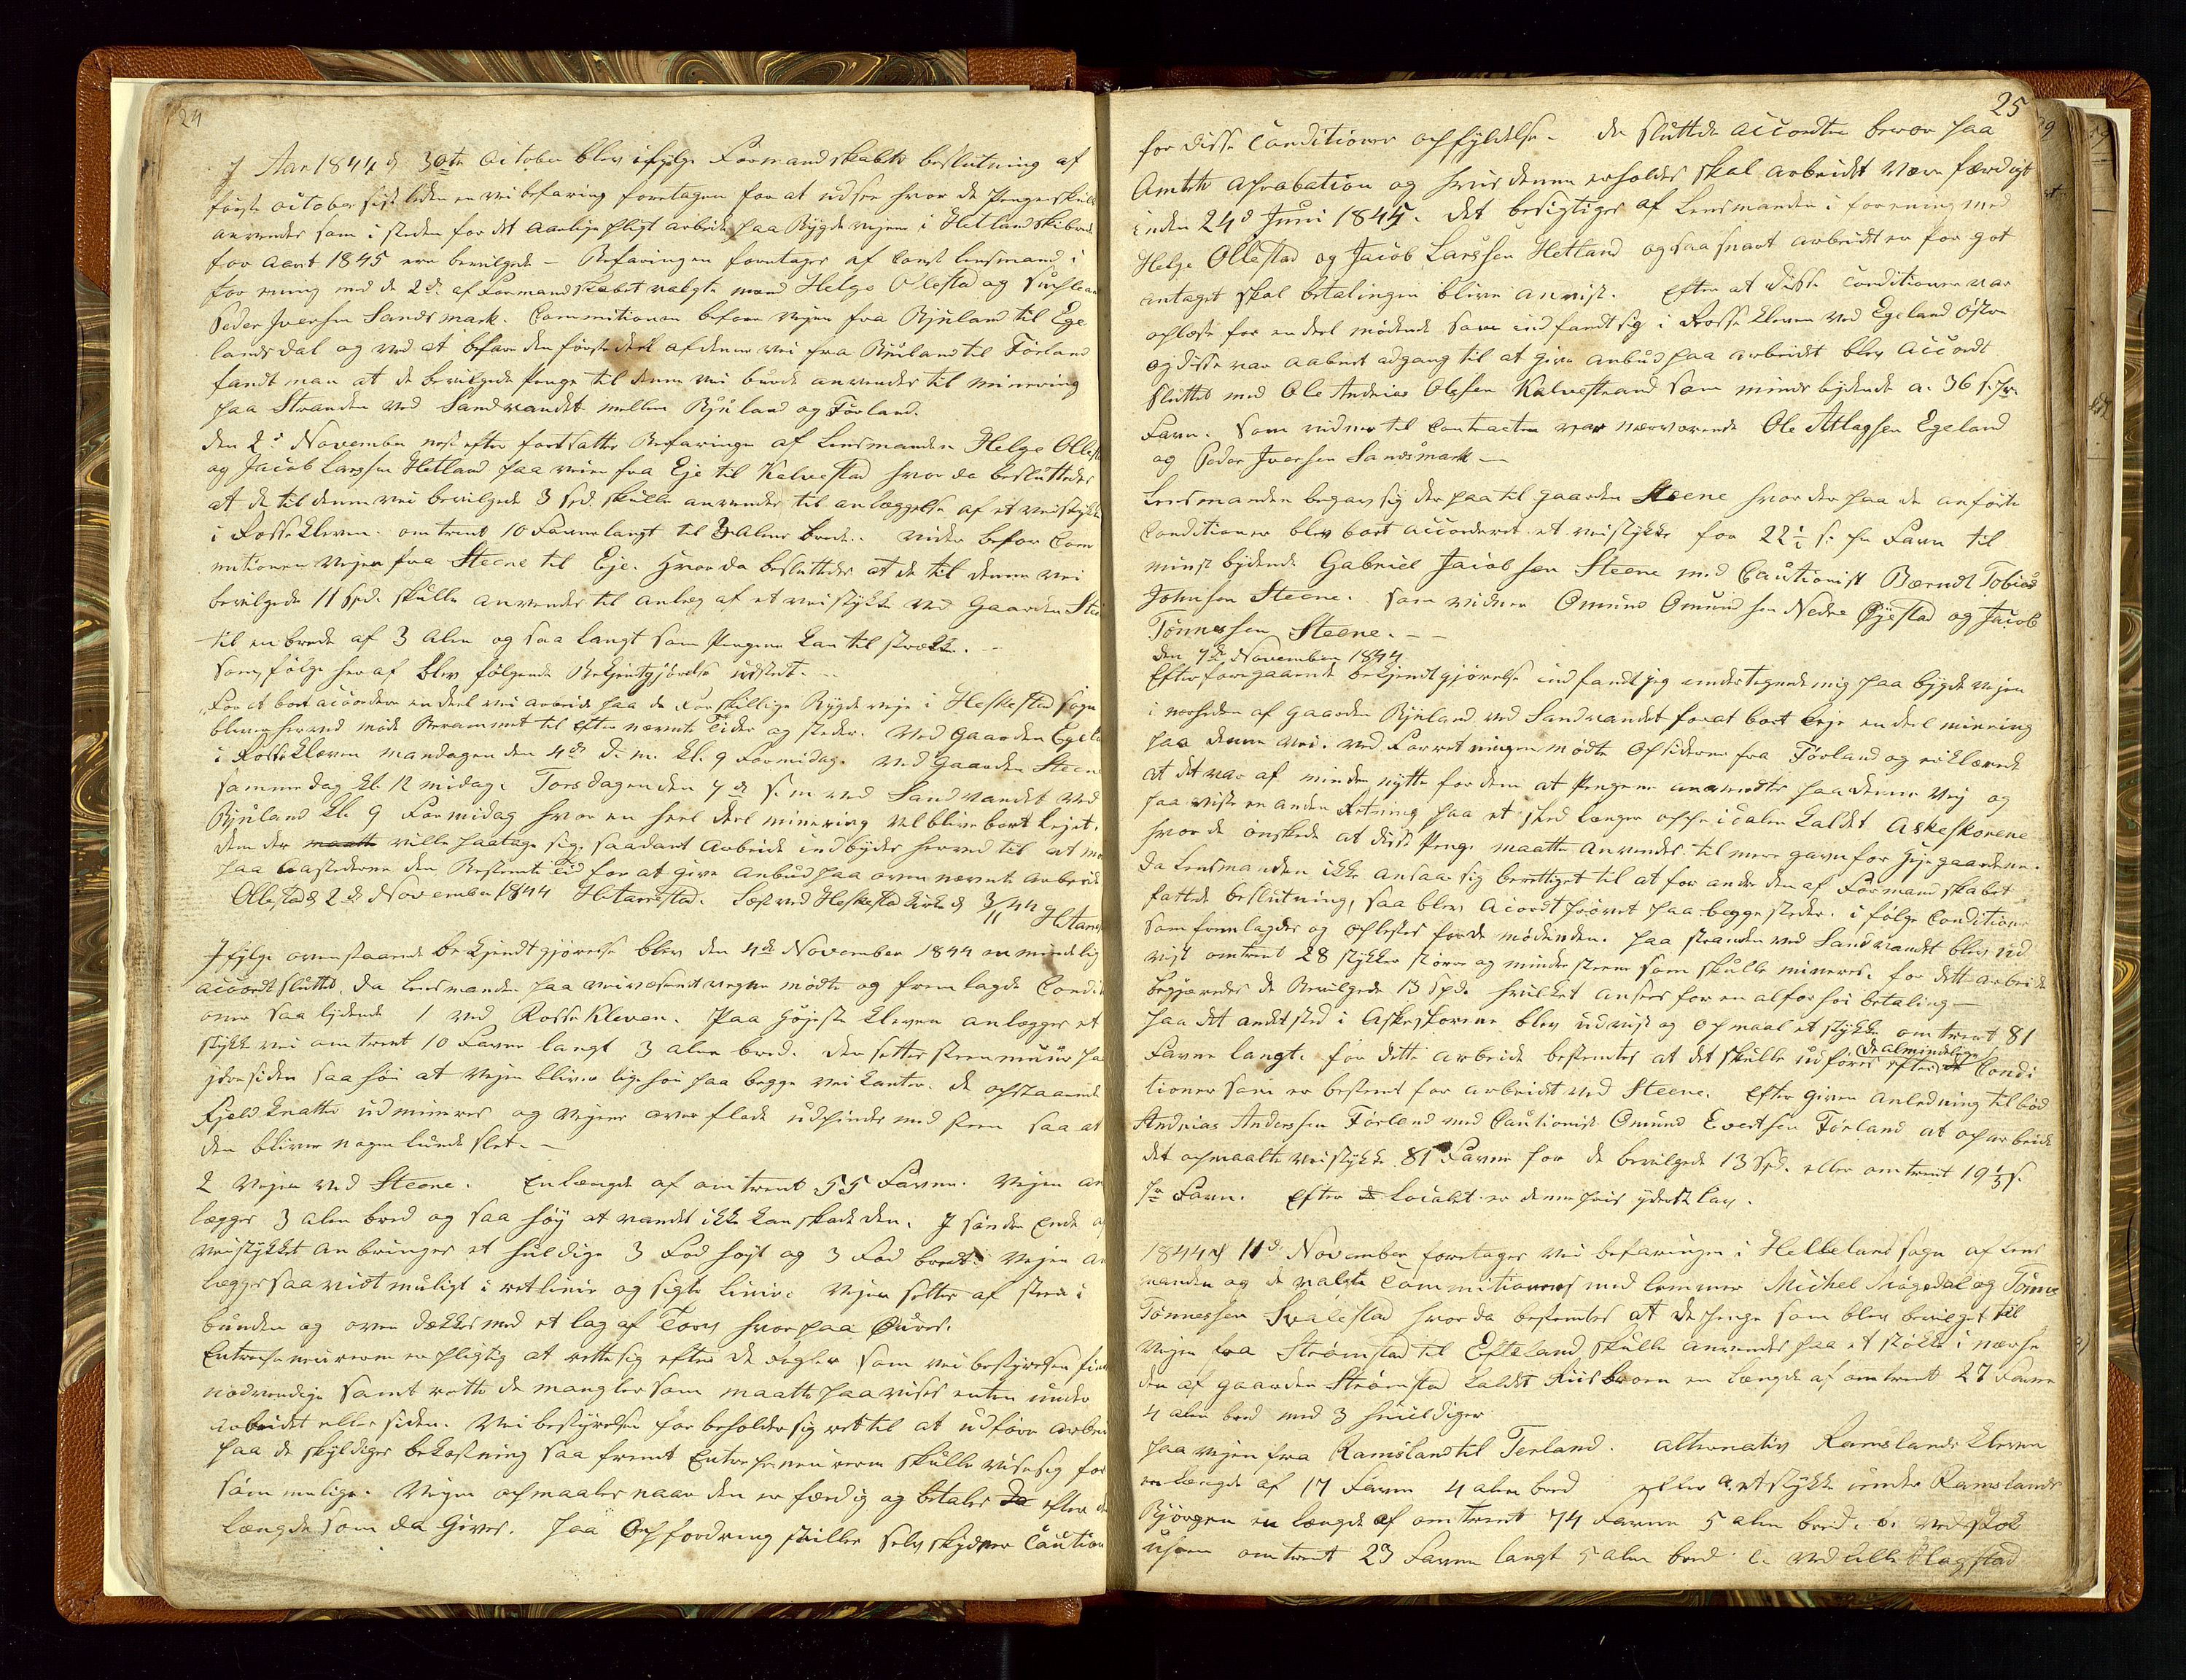 24
I Aar 1844 d 30te October blev ifølge Formandskabets beslutning af
første October sistleden en vei befaring foretagen for at udsee hvor de Penge skulle
anvendes som i steden for det aarlige pligt arbeide paa Bygdeveiene i Hetland skibrede
for Aaret 1845 ere bevilgede – Befaringen foretages af Const Lensmand i
forening med de 2de af Formandskabet valgte mænd Helge Ollestad og
Peder Iversen Sandsmark. Commitionen befoer Vejen fra Bjuland til Ege
landsdal og ved at befare den første deel af denne vei fra Bjuland til Førland
fandt man at de bevilgede Penge til denne vei burde anvendes til minering
paa Stranden ved Sandvandet mellem Bjuland og Førland.
den 2d November nest efter fortsattes Befaringen af Lensmanden Helge Ollestad
og Jacob Larssen Hetland paa veien fra Eje til Kalvestad hvor da besluttedes
at de til denne vei bevilgede 3 spd. skulle anvendes til anlæggelse af et veistykke
i Rossekleven. omtrent 10 Favne langt til 3 Alens brede. vider befor Com
mitionen Vejen fra Steene til Eje. Hvor da besluttedes at de til denne vei
bevilgede 11 Spd. skulle anvendes til anlæg af et veistykke ved Gaarden Steene
til en brede af 3 Alen og saa langt som Pengene kan til strække. –
Som følge heraf blev følgende Bekjentgjørelse udstedt. –
For at bort accordere en deel vei arbeide paa de forskillige Bygdeveje i Heskestad sogn
bliver herved møde Berammet til efter nævnte Tider og steder. Ved Gaarden Egeland
i Rossekleven Mandagen den 4de d. m. kl. 9 Formidag. ved Gaarden Steene
samme dag kl. 12 midag. Torsdagen den 7de s. m. ved Sandvandet ved
Bjuland kl. 9 Formidag hvor en heel deel minering vel blive bort lejet.
dem der maatte ville paatage sig saadant Arbeide indbydes herved til at møde
paa Aastederne den Bestemte tid for at give Anbud paa oven nævnte Arbeide
Ollestad d 2de November 1844 H: Aarrestad. Læst ved Heskestad kirke d 3/11 44 H: Aarrestad
Ifølge ovenstaaende bekjendtgjørelse blev den 4de November 1844 en mindelig
accord sluttet, da Lensmanden paa veivæsenets vegne mødte og fremlagde Condi
oner saa lydende 1 ved Rossekleven. Paa Højeste kleven anlægges et
stykke vei omtrent 10 Favne langt 3 alen bred. der settes steen muur paa
ydresiden saa høi at vejen bliver lige høi paa begge veikanter. de opstaaende
Fjeld knatter udmineres og Vejens overflade udpindes med steen saa at
den bliver nogenlunde slet. –
2 Vejen ved Steene. En længde af omtrent 55 Favne. Vejen an
lægges 3 alen bred og saa høy at vandet ikke kan skade den. I søndre Ende af
veistykket anbringes et huldige 3 Fod højt og 3 Fod bredt. Vejen an
lægges saa vidt muligt i ret linie og sigte linie. Vejen settes af steen i
bunden og oven dækkes med et lag af Torv hvorpaa Øures.
Entreprenneuren er pligtig at rette sig efter de Regler som vei bestyrelsen finder
nødvendige samt rette de mangler som maatte paavises enten under
arbeidet eller siden. Vei bestyrelsen forbeholder sig ret til at udføre arbeidet
paa de skyldiges bekostning saa fremt Entreprenneuren skulle vise sig for
sømmelige. Vejen opmaales naar den er færdig og betales da efter den
længde som da Gives. Paa Opfordring stilles selvskyldner Caution
25
for disse Conditioners opfyldelse. de sluttede accorder beroer paa
Amtets Aprobation og hvis denne erholdes skal arbeidet være færdigt
inden 24d Juni 1845. det besigtiges af Lensmanden i forening med
Helge Ollestad og Jacob Larssen Hetland og saa snart arbeidet er for got
antaget skal betalingen blive anvist. Efter at disse Conditioner var
oplæste for en deel mødende som indfandt sig i Rossekleven ved Egeland østre
og disse var aabnet adgang til at give anbud paa arbeidet blev accordt
sluttet med Ole Andreas Olsen Kalvestrand som mindstbydende a. 36 s. pr.
Favn. Som vidner til Contracten var nærværende Ole Atlagsen Egeland
og Peder Iversen Sandsmark –
Lensmanden begav sig derpaa til Gaarden Steene hvor der paa de anførte
Conditioner blev bort accorderet et veistykke for 22½ s. pr Favn til
minstbydende Gabriel Jacobsen Steene med Cautionist Berndt Tobias
Johnsen Steene. Som vidner Omund Omundsen Nedre Øjestad og Jacob
Tønnessen Steene. – –
den 7de November 1844
Efter foregaaende bekjendtgjørelse indfandt jeg undertegnede mig paa bygdevejen
i nerheden af Gaarden Bjuland ved Sandvandet for at bort leje en deel minering
paa denne vei. ved Forretningen mødte Opsidderne fra Førland og erklærede
at det var af minder nytte for dem at Pengene anvendtes paa denne Vej og
paaviste en anden Retning paa et sted længere oppe i dalen kaldet Askeskorene
hvor de ønskede at disse Penge maatte anvendes til mere gavn for Ejegaardene.
Da Lensmanden ikke ansaae sig berettiget til at forandre den af Formandskabet
fattede beslutning, saa blev Acordt prøvet paa begge steder. ifølge Conditioner
som fremlagdes og oplestes for de mødende. Paa stranden ved Sandvandet blev ud
vist omtrent 28 stykker større og mindre steene som skulle mineres. for dette arbeide
begjæredes de Bevilgede 13 Spd. hvilket ansees for en altfor høi betaling –
Paa det andet sted i Askeskorene blev udvist og opmaalt et stykke omtrent 81
Favne langt. for dette arbeide bestemtes at det skulle udføres efter de almindelige Condi
tioner som er bestemt for arbeidet ved Steene. Efter given Anledning tilbød
Andreas Anderssen Førland med Cautionist Omund Evertsen Førland at oparbeide
det opmaalte veistykke 81 Favne for de bevilgede 13 Spd. eller omtrent 19⅓ s.
pr Favn. Efter Localet er denne pris yderst lav.
1844 d 11d November foretages vei befaringen i Helleland sogn af Lens
manden og de valgte Commitionens med lemmer Michel Møgedal og Tønnes
Tønnessen Svalestad hvor da bestemtes at de penge som blev bevilget til
Vejen fra Strømstad til Efteland skulle anvendes paa et støkke i nærhe
den af gaarden Strømstad kaldet Riisbroen en længde af omtrent 27 Favne
4 alen bred med 3 huuldiger
paa vejen fra Ramsland til Terland. alternativ Ramslands kleven
en længde af 17 Favne 4 alen bred eller a. et stykke under Ramslands
Bjørgen en længde af omtrent 74 Favne 5 alen bred. b. ved stok
omtrent 23 Favne langt 5 alen bred c. ved lille Slagstad